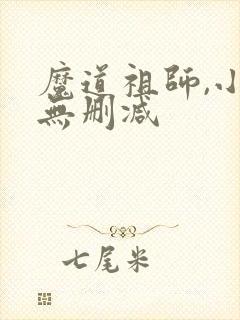 魔道祖師,小
無删减
七尾米